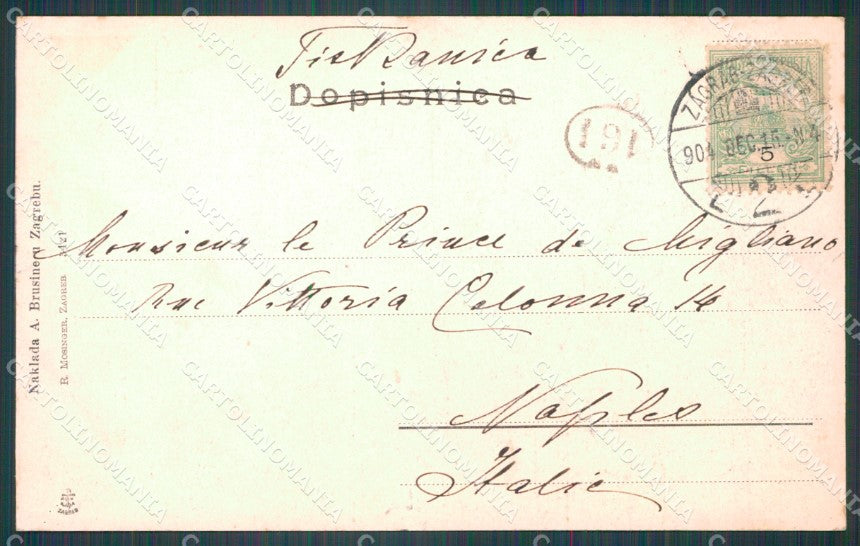 Tiskanica
Dopisnica
191
ZAGREB
904 DEC. 15
5
2
Monsieur le Prince de Migliano
Rue Vittoria Colonna 14
Naples
Italie
Naklada A. Brusine, u Zagrebu.
R. Mosinger, Zagreb
ZAGREB
CARTOLINOMANIA